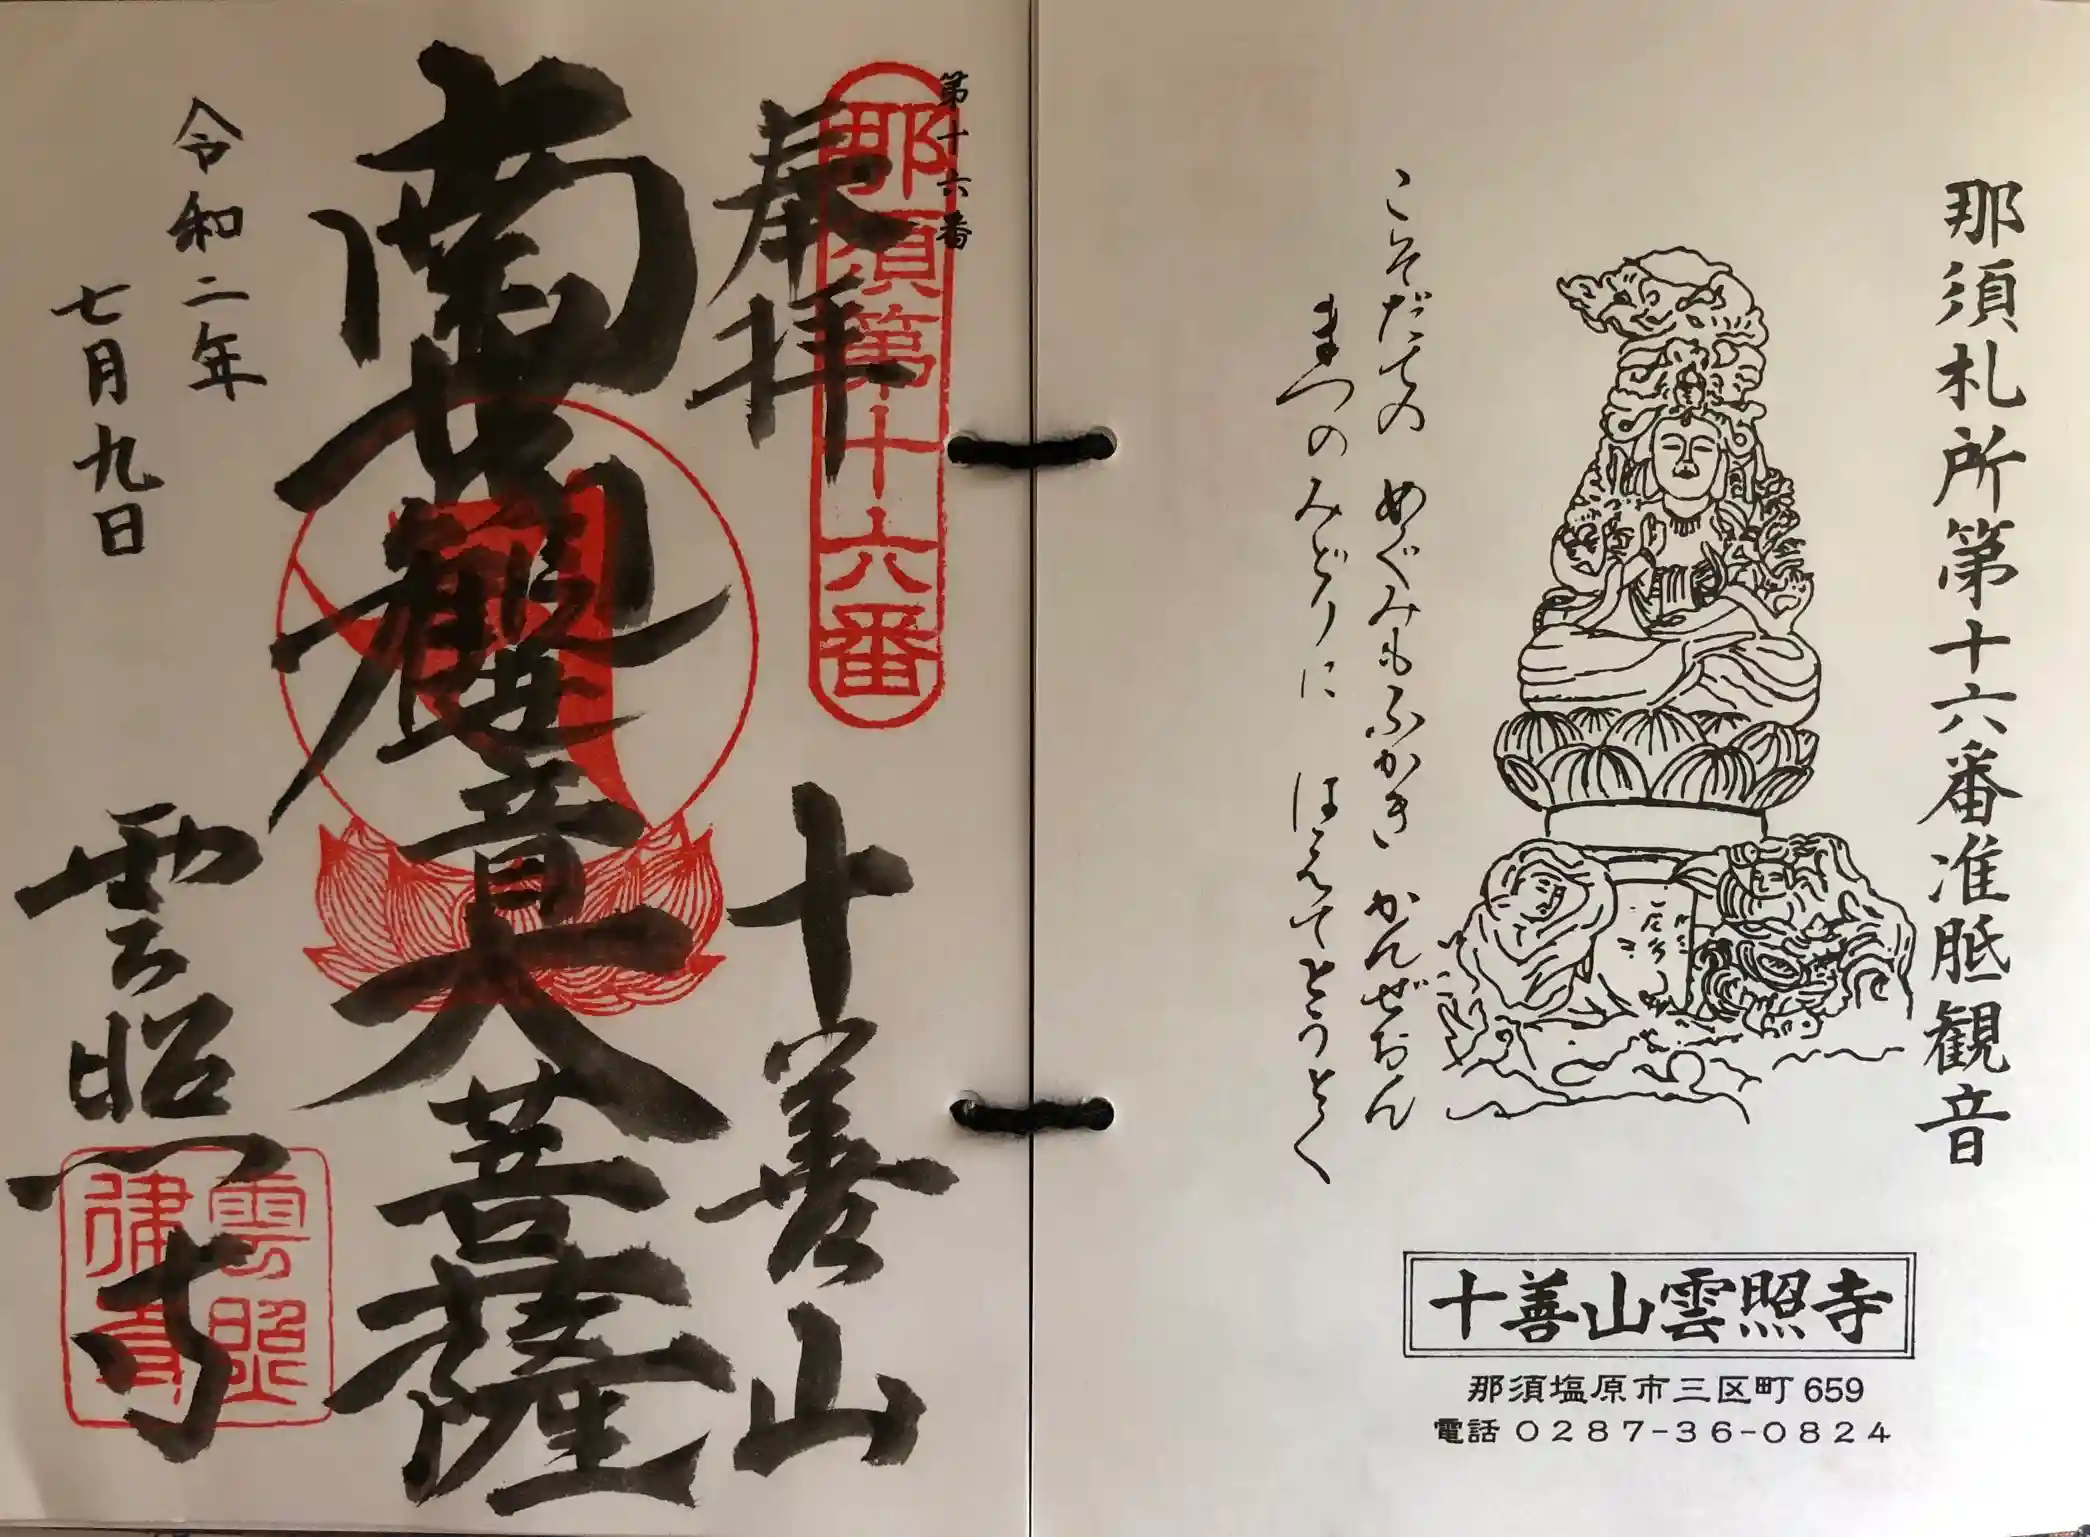 那須札所第十六番准胝観音
こそだての めぐみもふかき かんぜおん
まつのみどりに はえてとうとく
十善山雲照寺
那須塩原市三区町 659
電話 0287-36-0824
第十六番
那須第十六番
奉拝
十善山
南無觀世音大菩薩
令和二年
七月九日
雲照寺
雲照
律寺